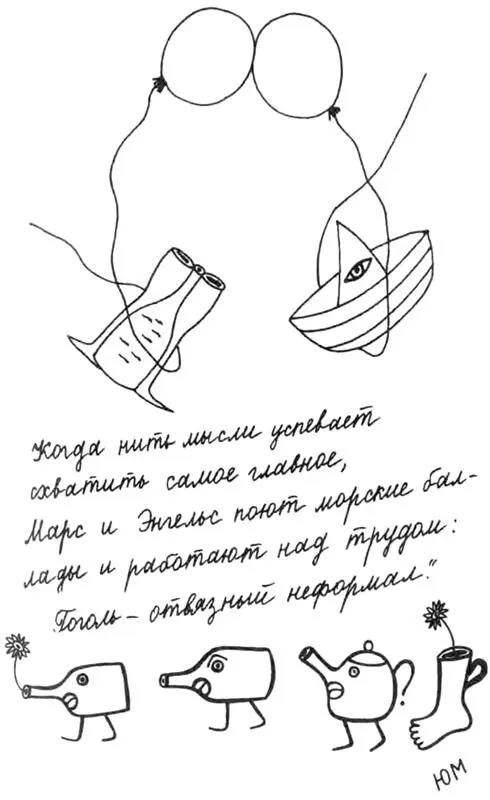 Когда нить мысли успевает
схватить самое главное,
Марс и Энгельс поют морские бал-
лады и работают над трудом:
"Гоголь – отвязный неформал."
?
ЮМ